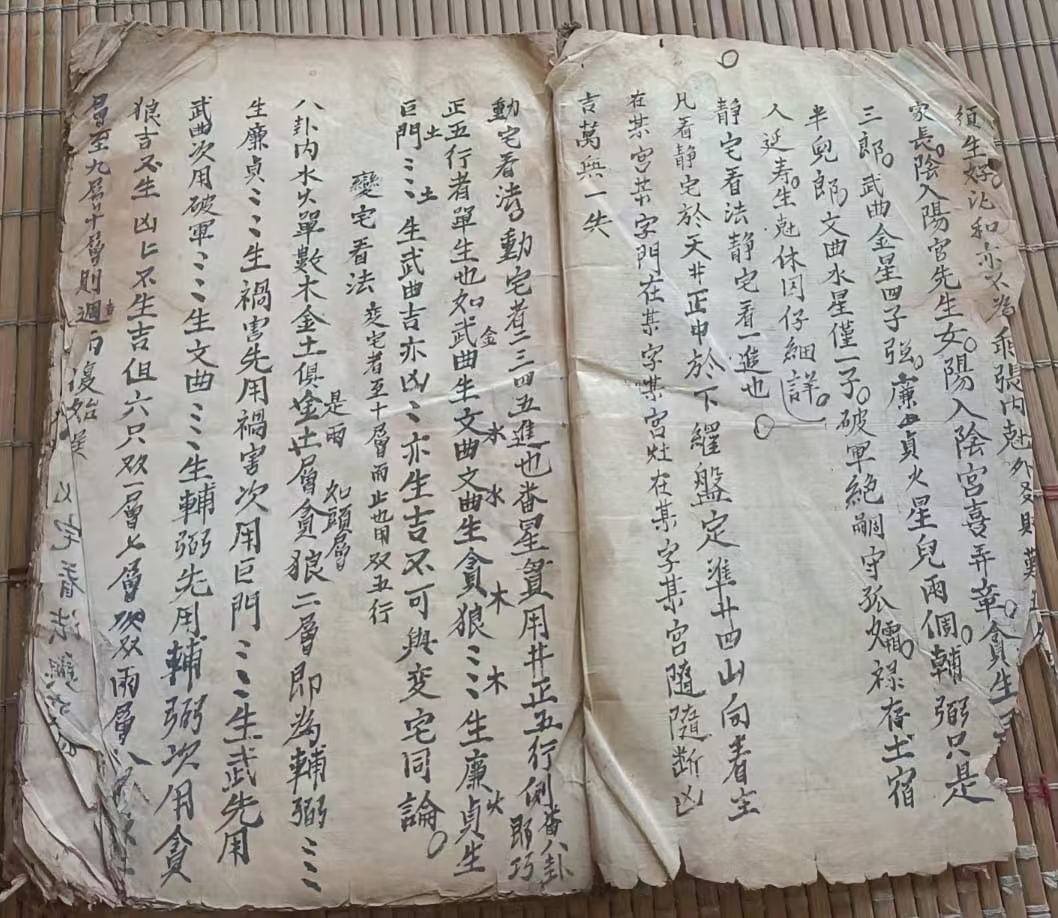 須生好 和亦不為乖張內尅外
家長陰入陽宮先生女陽入陰宮喜弄章貪生
三郎武曲金星四子強廉貞火星兒兩個輔弼只是
半兒郎文曲水星僅一子破軍絕嗣守孤孀祿存土宿
人延寿生尅休囚仔細詳
静宅看法静宅看一進也
凡看静宅於天井正中於下羅盤定準廿四山向看主
在某宮某字門在某字某宮灶在某字某宮隨隨断凶
吉萬無一失
動宅看法動宅者二三四五進也畨星貫用井正五行側畨八卦
正五行者單生也如武曲生文曲文曲生貪狼〻〻生廉貞生
金水水木木火
巨門〻〻生武曲吉亦凶〻亦生吉不可與変宅同論
土土
變宅看法 変宅者至十層而止也用双五行
八卦內水火單數木金土俱是兩金土 如頭層貪狼二層即為輔弼〻〻
生廉貞〻〻生禍害先用禍害次用巨門〻〻生武先用
武曲次用破軍〻〻生文曲〻〻生輔弼先用輔弼次用貪
狼吉不生凶凶不生吉但六只双一層七層次双兩層八
層至九層十層則週而復始
宅看法